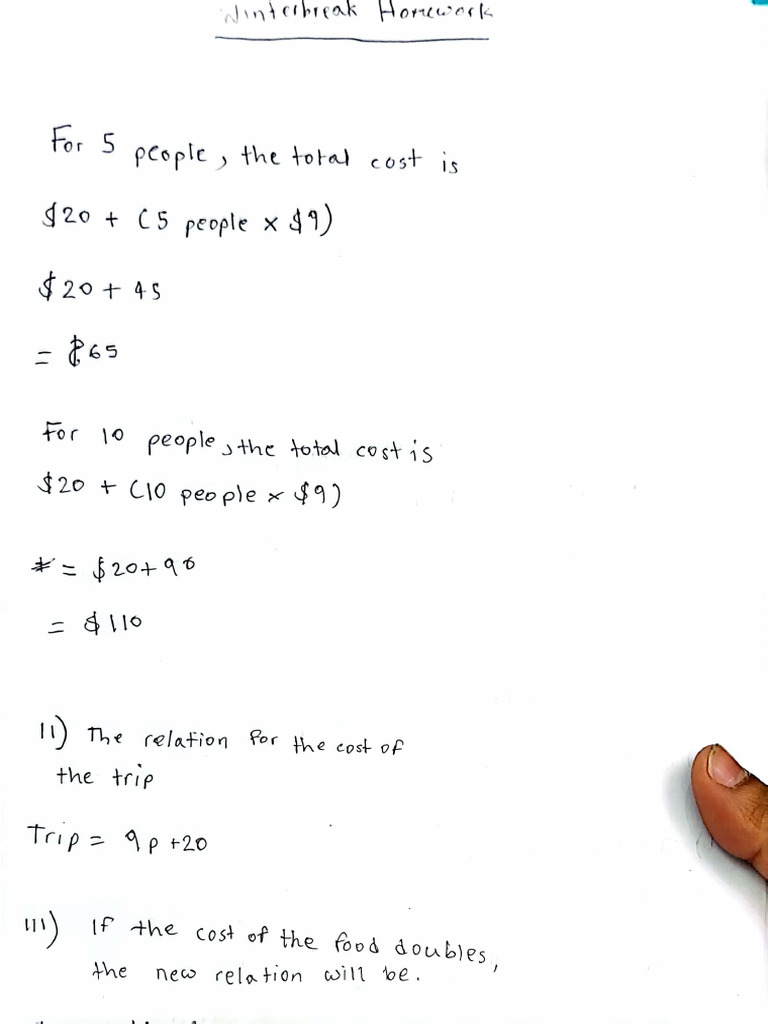 Winterbreak Homework
For 5 people, the total cost is
$20 + (5 people x $9)
$20 + 45
= $65
For 10 people, the total cost is
$20 + (10 people x $9)
= $20+90
= $110
II) The relation for the cost of
the trip
Trip = 9p +20
III) If the cost of the food doubles,
the new relation will be.